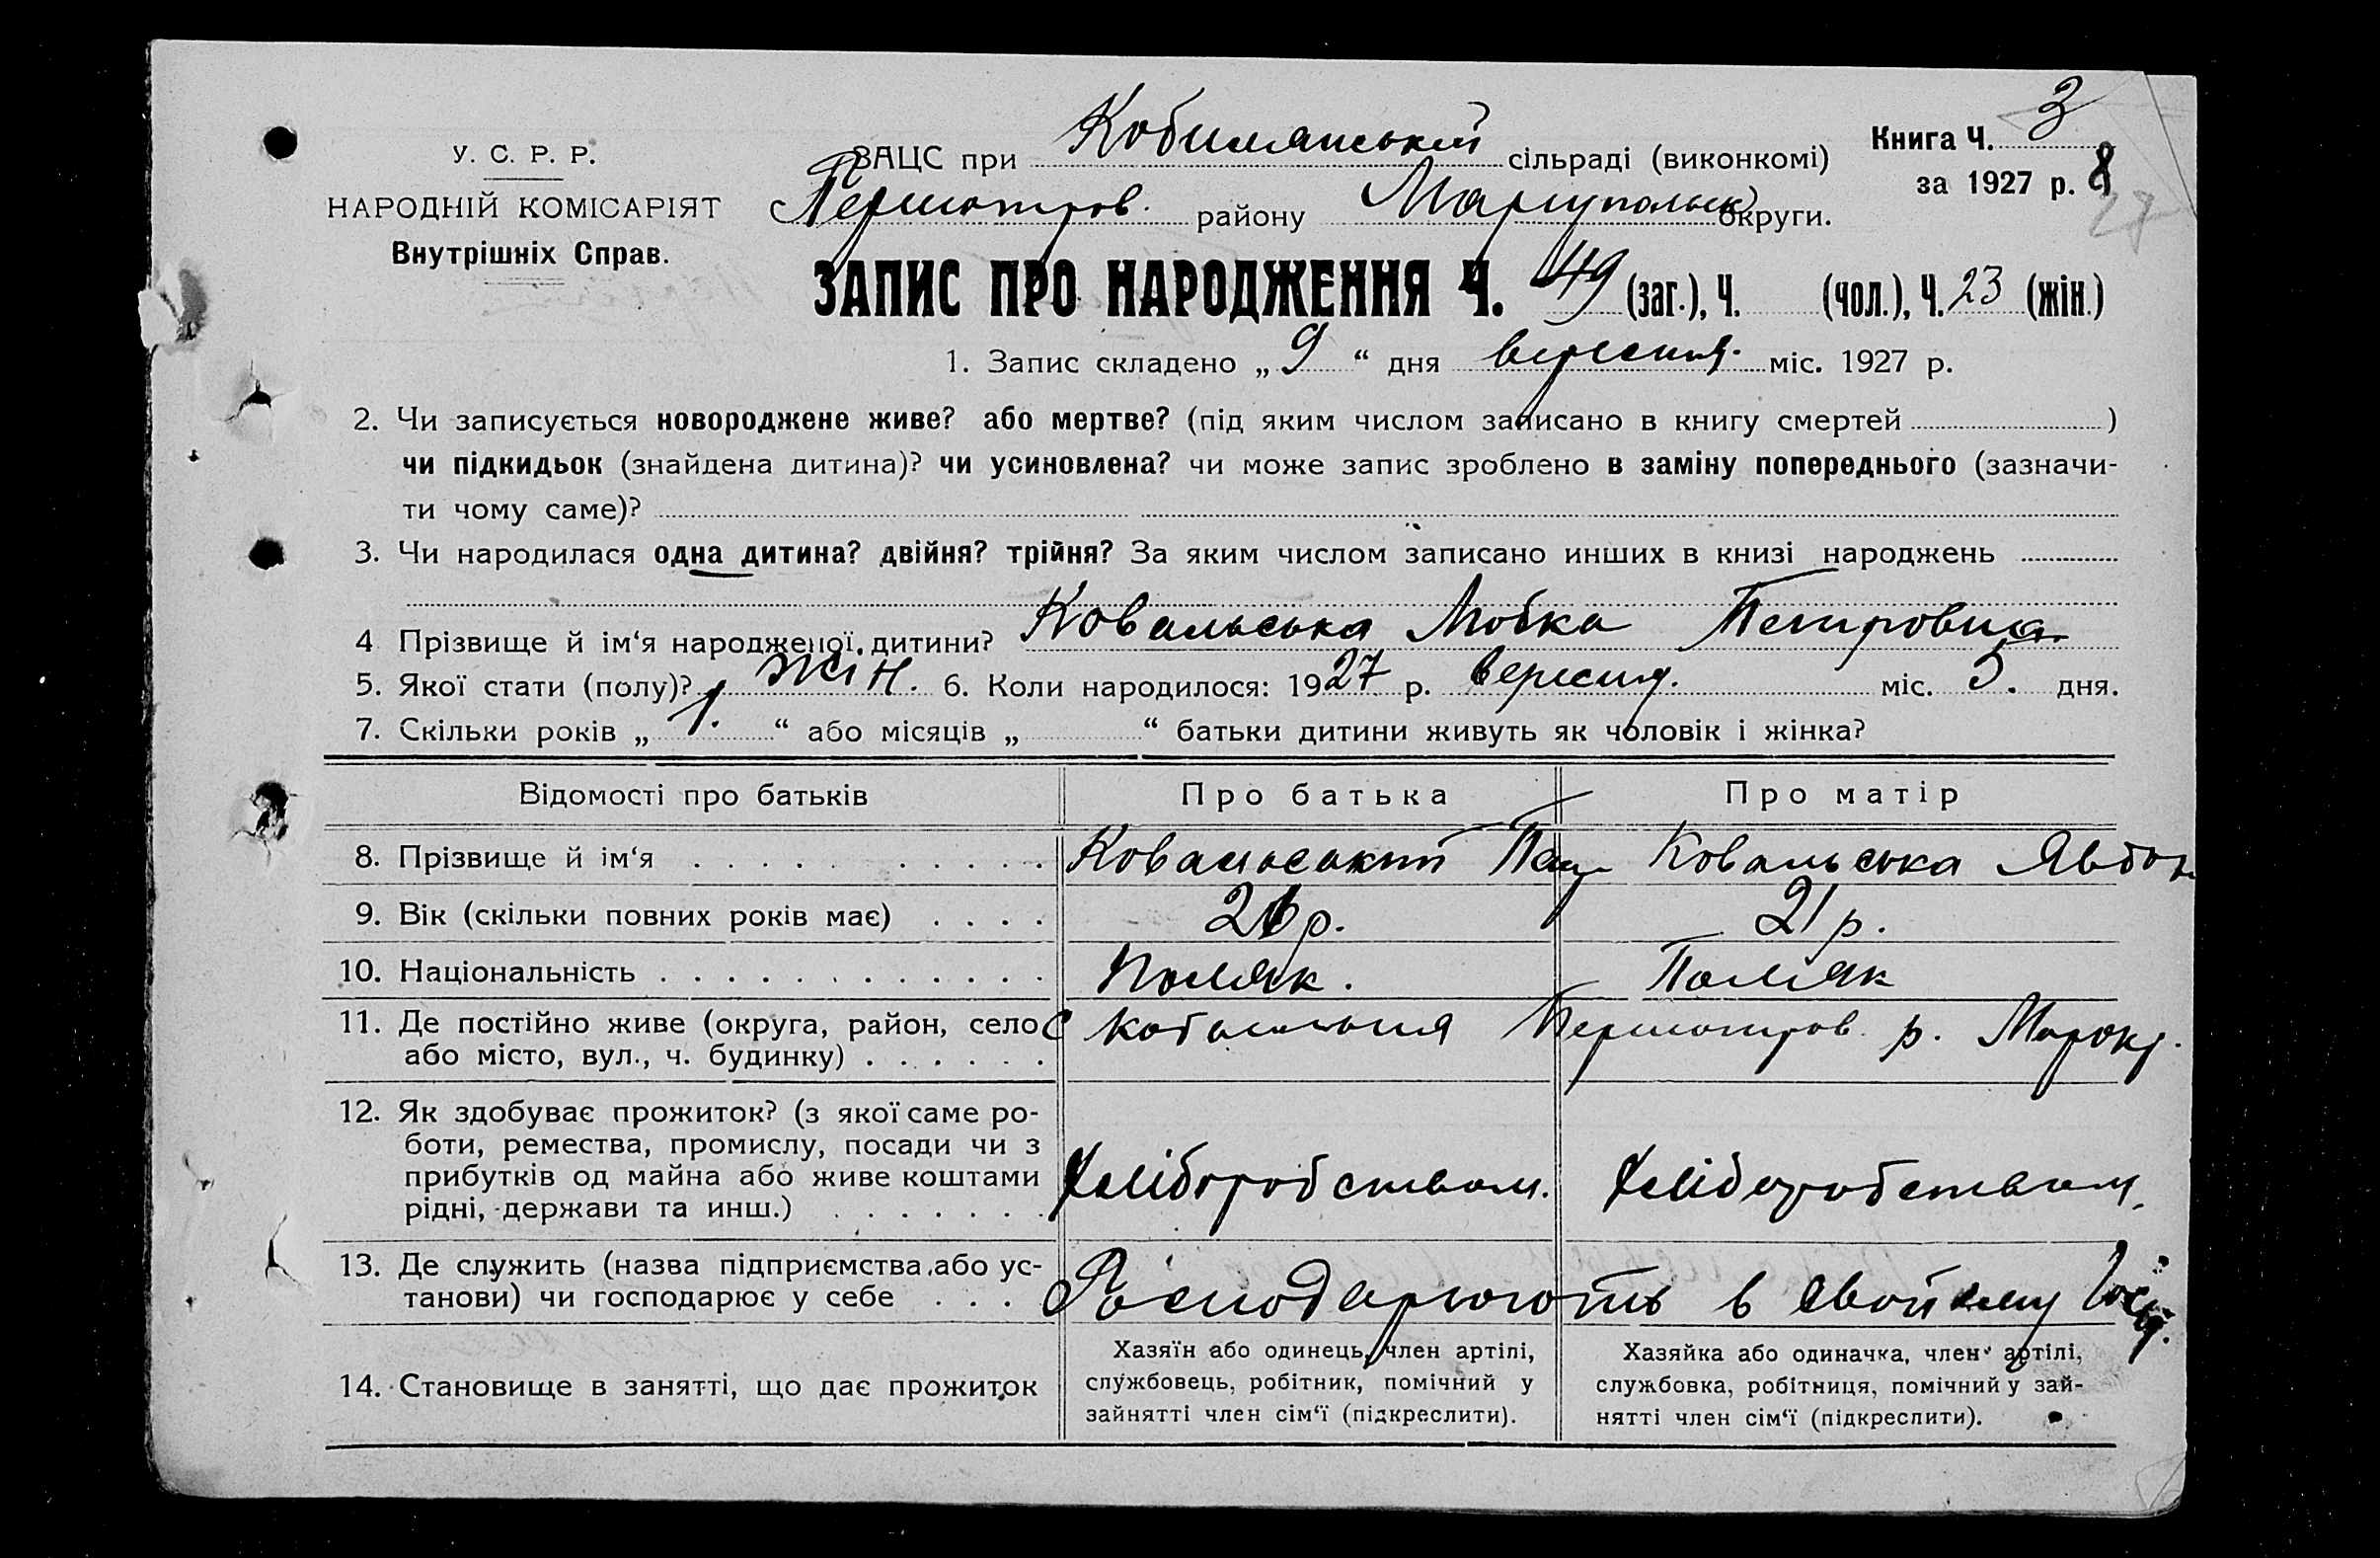 У. С. Р. Р.
НАРОДНІЙ КОМІСАРІЯТ
Внутрішніх Справ.
ЗАЦС при Кобилянській сільраді (виконкомі)
Першотров. району Маріупольськ округи.
Книга Ч. 3
за 1927 р. 8
27
ЗАПИС ПРО НАРОДЖЕННЯ Ч. 49 (заг.), Ч. (чол.), Ч. 23 (жін.)
1. Запис складено „ 9 “ дня вересня. міс. 1927 р.
2. Чи записується новороджене живе? або мертве? (під яким числом записано в книгу смертей )
чи підкидьок (знайдена дитина)? чи усиновлена? чи може запис зроблено в заміну попереднього (зазначи-
ти чому саме)?
3. Чи народилася одна дитина? двійня? трійня? За яким числом записано инших в книзі народжень
4 Прізвище й ім‘я народженої дитини? Ковальська Любка Петровна
5. Якої стати (полу)? жін. 6. Коли народилося: 1927 р. вересня. міс. 5. дня.
7. Скільки років „ 1. “ або місяців „ “ батьки дитини живуть як чоловік і жінка?
Відомості про батьків Про батька Про матір
8. Прізвище й ім‘я Ковальський Ковальська Явдок
9. Вік (скільки повних років має) р. 21 р.
10. Національність Поляк. Поляк
11. Де постійно живе (округа, район, село С Першотров р. Мар окр.
або місто, вул., ч. будинку)
12. Як здобуває прожиток? (з якої саме ро-
боти, ремества, промислу, посади чи з
прибутків од майна або живе коштами Хліборобством. Хліборобством,
рідні, держави та инш.)
13. Де служить (назва підприємства або ус-
танови) чи господарює у себе Господарюють в свойому госп.
Хазяїн або одинець, член артілі, Хазяйка або одиначка, член артілі,
14. Становище в занятті, що дає прожиток службовець, робітник, помічний у службовка, робітниця, помічний у зай-
зайнятті член сім‘ї (підкреслити). нятті член сім‘ї (підкреслити).